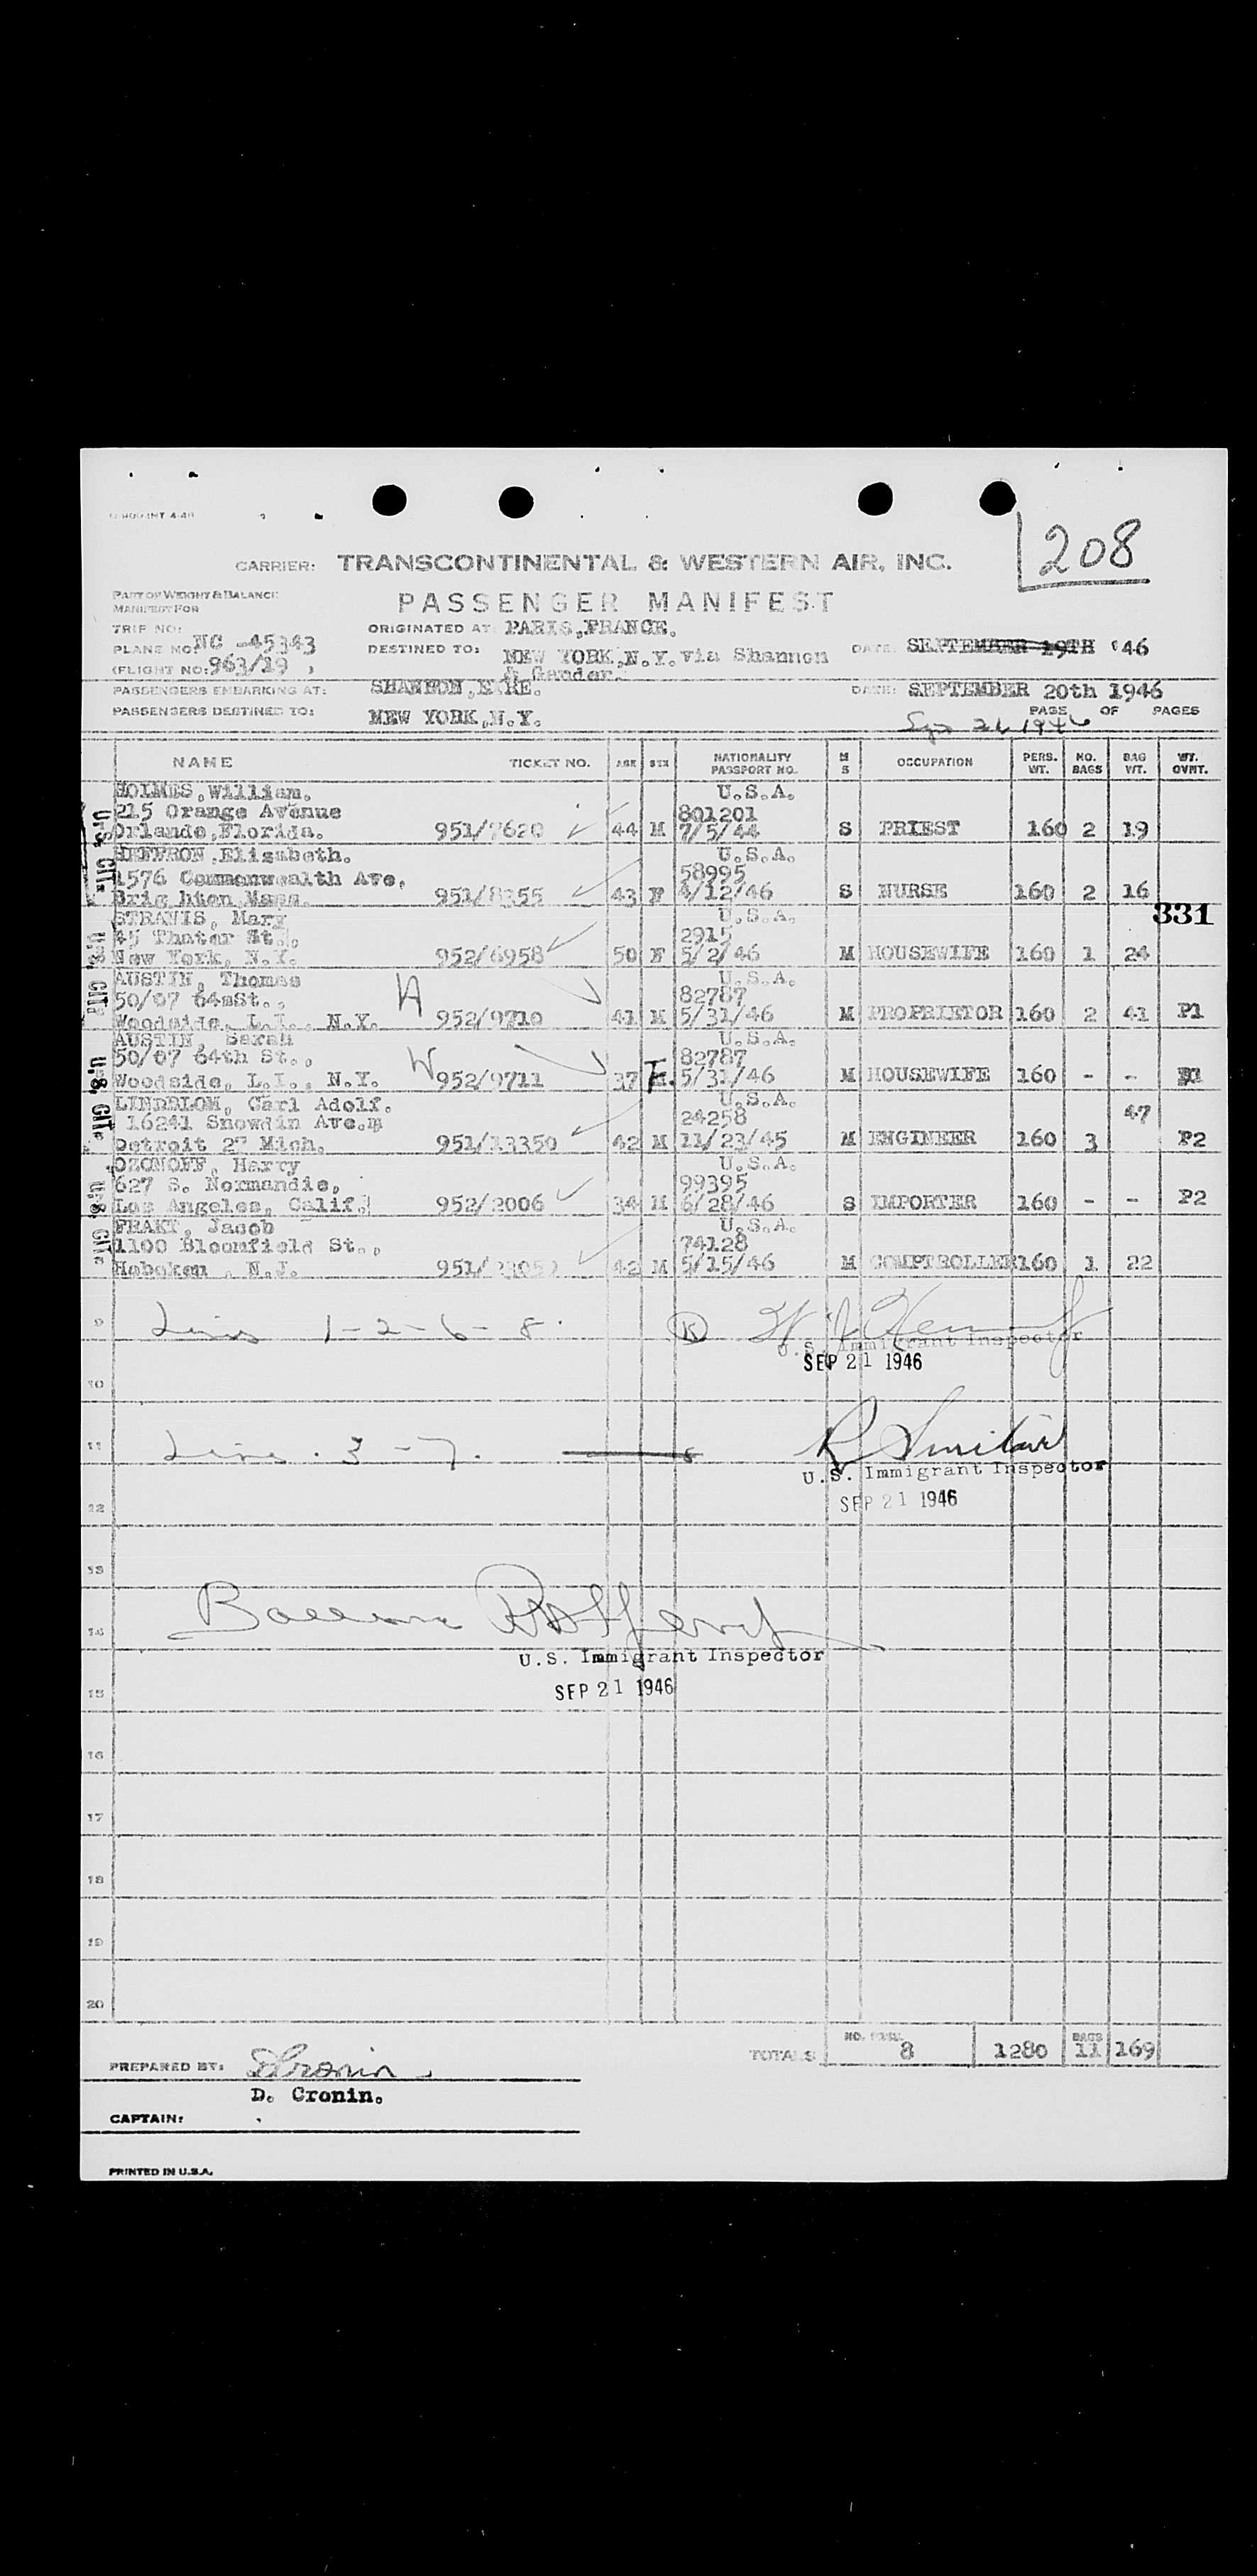 208
CARRIER: TRANSCONTINENTAL & WESTERN AIR, INC.
PART OF WEIGHT & BALANCE
MANIFEST FOR
PASSENGER MANIFEST
TRIP NO:
ORIGINATED AT: PARIS,FRANCE.
PLANE NO: NC -45343
DESTINED TO: NEW YORK,N.Y.via Shannon
& Gander.
DATE: SEPTEMBER 19TH '46
(FLIGHT NO: 963/19 )
PASSENGERS EMBARKING AT: SHANNON,EIRE.
DATE: SEPTEMBER 20th 1946
PASSENGERS DESTINED TO: NEW YORK,N.Y.
PAGE OF PAGES
Sep 21, 1946
NAME TICKET NO. AGE SEX NATIONALITY PASSPORT NO. M S OCCUPATION PERS. WT. NO. BAGS BAG WT. WT. OVNT.
HOLMES,William. U.S.A.
215 Orange Avenue 801201
Orlando,Florida. 951/7620 44 M 7/5/44 S PRIEST 160 2 19
HEFFRON,Elizabeth. U.S.A.
1576 Commonwealth Ave, 58995
Brighton Mass. 951/8355 43 F 4/12/46 S NURSE 160 2 16
331
STRAVIS, Mary U.S.A.
45 Thater St., 2915
New York, N.Y. 952/6958 50 F 5/2/46 M HOUSEWIFE 160 1 24
AUSTIN, Thomas U.S.A.
50/07 64mSt., H 82787
Woodside, L.I., N.Y. 952/9710 41 M 5/31/46 M PROPRIETOR 160 2 41 P1
AUSTIN, Sarah U.S.A.
50/07 64th St., W 82787
Woodside, L.I., N.Y. 952/9711 37 F. 5/31/46 M HOUSEWIFE 160 - - P1
LINDBLOM, Carl Adolf. U.S.A.
16241 Snowdin Ave.m 24258 47
Detroit 27 Mich. 951/13350 42 M 11/23/45 M ENGINEER 160 3 P2
OZONOFF, Harry U.S.A.
627 S. Normandie, 99395
Los Angeles, Calif. 952/2006 34 M 6/28/46 S IMPORTER 160 - - P2
FRAKT, Jacob U.S.A.
1100 Bloomfield St., 74128
Hoboken , N.J. 951/23052 42 M 5/15/46 M COMPTROLLER 160 1 22
U.S. CIT.
U.S. CIT.
U.S. CIT.
U.S. CIT.
9 Lines 1-2-6-8. K
U.S. Immigrant Inspector
SEP 21 1946
10
11 Line . 3 - 7.
U.S. Immigrant Inspector
SEP 21 1946
12
13
14
U.S. Immigrant Inspector
SEP 21 1946
15
16
17
18
19
20
TOTALS NO. PASS. 8 1280 BAGS 11 169
PREPARED BY: D Cronin
D. Cronin.
CAPTAIN:
PRINTED IN U.S.A.